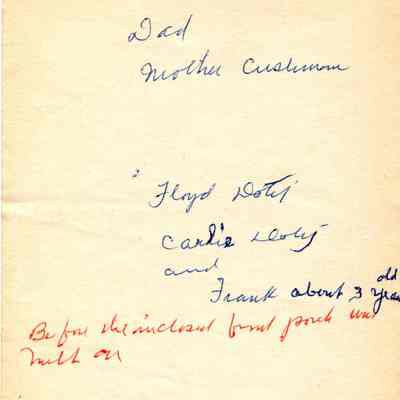 Dad
Mother Cushman
Floyd Doty
Carrie Doty
and
Frank about 3 years old
Before the inclosed front porch was
built on